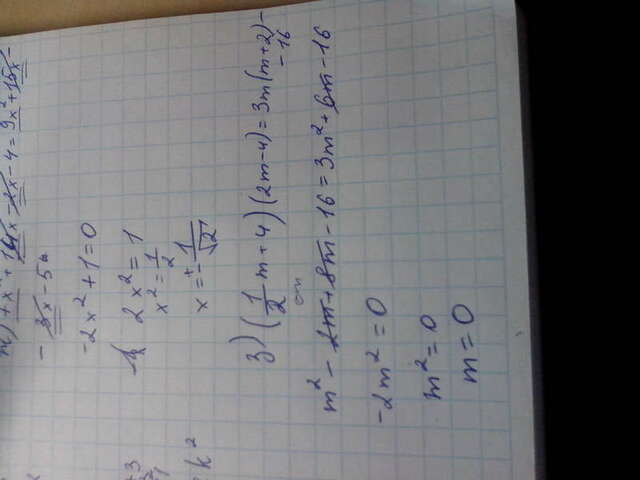 + x - 4 = 9x² + 15x -
- 3x - 5
-2x² + 1 = 0
2x² = 1
x² = 1/2
x = ± 1/√2
3) (1/2 m + 4) (2m - 4) = 3m(m + 2) -
- 16
m² - 2m + 8m - 16 = 3m² + 6m - 16
-2m² = 0
m² = 0
m = 0
k²